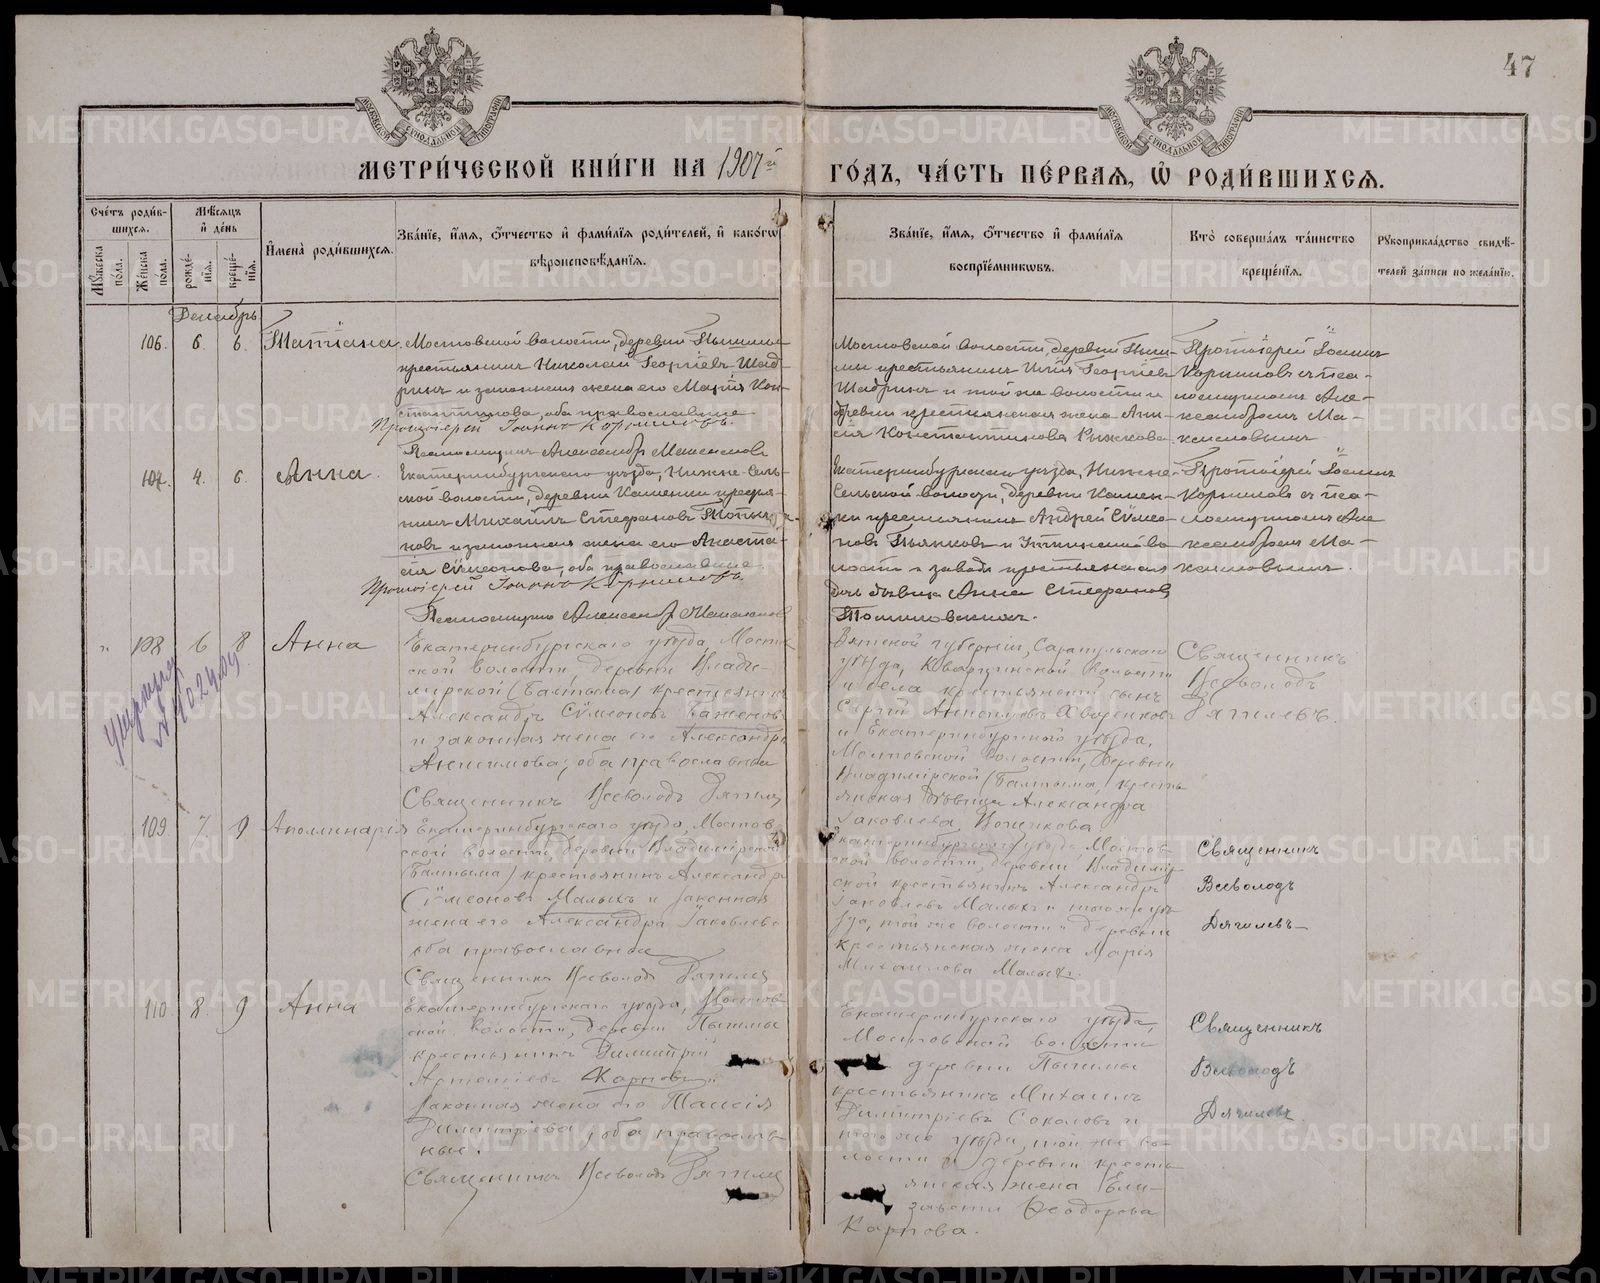 47
МЕТРИ́ЧЕСКОЙ КНИ́ГИ НА 1907й ГО́ДЪ, ЧА́СТЬ ПЕ́РВАЯ, Ѡ҆ РОДИ́ВШИХСЯ.
Сче́тъ роди́в-
шихся.
Мѣ́сяцъ
и҆ де́нь
Мꙋ́жеска по́ла.
Же́нска по́ла.
рожде́-
нїя.
креще́-
нїя.
И҆мена̀ роди́вшихся.
Зва́нїе, и҆́мя, ѻ҆́тчество и҆ фами́лїя роди́телей, и҆ како́гѡ
вѣроисповѣ́данїя.
Зва́нїе, и҆́мя, ѻ҆́тчество и҆ фами́лїя
воспрїе́мникѡвъ.
Кто̀ соверша́лъ та́инство
креще́нїя.
Рꙋкоприкла́дство свидѣ́-
телей за́писи по жела́нїю.
Декабрь
106. 6. 6. Татіана.
Мостовской волости, деревни Пышмы
крестьянинъ Николай Георгіевъ Шад-
ринъ и законная жена его Марія Кон-
стантинова, оба православные
Протоіерей Іоаннъ Корниловъ.
Псаломщикъ Александръ Максимовъ
Мостовской волости, деревни Пыш-
мы крестьянинъ Илія Георгіевъ
Шадринъ и той же волости и
деревни крестьянская жена
Константинова Рыжкова
Протоіерей Іоаннъ
Корниловъ съ пса-
ломщикомъ Але-
ксандромъ Ма-
ксимовымъ
107. 4. 6. Анна.
Екатеринбургскаго уѣзда, Нижне-Сель-
ской волости, деревни Каменки крестья-
нинъ Михаилъ Стефановъ
новъ и законная жена его Анаста-
сія Сѵмеонова, оба православные.
Протоіерей Іоаннъ Корниловъ.
Псаломщикъ Александръ Максимовъ
Екатеринбургскаго уѣзда, Нижне-
Сельской волости, деревни Камен-
ки крестьянинъ Андрей Сѵмео-
новъ Пьянковъ и Уткинской во-
лости и завода крестьянская
дочь дѣвица Анна Стефанова
Томиловыхъ.
Протоіерей Іоаннъ
Корниловъ съ пса-
ломщикомъ Але-
ксандромъ Ма-
ксимовымъ.
" 108 6 8 Анна
Екатеринбургскаго уѣзда, Мостов-
ской волости, деревни Влади-
мірской (Балтыма) крестьянинъ
Александръ Сѵмеоновъ Баженовъ
и законная жена его Александра
Анисимова; оба православные
Священникъ Всеволодъ Дягилевъ
Вятской губерніи, Сарапульскаго
уѣзда, волости
и села крестьянскій сынъ
Сергій
и Екатеринбургскаго уѣзда,
Мостовской волости, деревни
Владимірской (Балтыма) кресть-
янская дѣвица Александра
Іаковлева
Священникъ
Всеволодъ
Дягилевъ.
109 7 9 Аполлинарія
Екатеринбургскаго уѣзда, Мостов-
ской волости, деревни Владимірской
(Балтыма) крестьянинъ Александръ
Сѵмеоновъ Малыхъ и законная
жена его Александра Іаковлева
оба православные
Священникъ Всеволодъ Дягилевъ
Екатеринбургскаго уѣзда, Мостов-
ской волости, деревни Владимір-
ской крестьянинъ Александръ
Іаковлевъ Малыхъ и того же уѣ-
зда, той же волости и деревни
крестьянская жена Марія
Михаилова Малыхъ.
Священникъ
Всеволодъ
Дягилевъ
110 8. 9 Анна
Екатеринбургскаго уѣзда, Мостов-
ской волости, деревни Пышмы
крестьянинъ Димитрій
Артеміевъ Карповъ и
законная жена его Таисія
Димитріева, оба православ-
ные.
Священникъ Всеволодъ Дягилевъ
Екатеринбургскаго уѣзда,
Мостовской волости
деревни Пышмы
крестьянинъ Михаилъ
Димитріевъ Соколовъ и
того же уѣзда, той же во-
лости и деревни кресть-
янская жена Ели-
завета Ѳеодорова
Карпова.
Священникъ
Всеволодъ
Дягилевъ.
METRIKI.GASO-URAL.RU